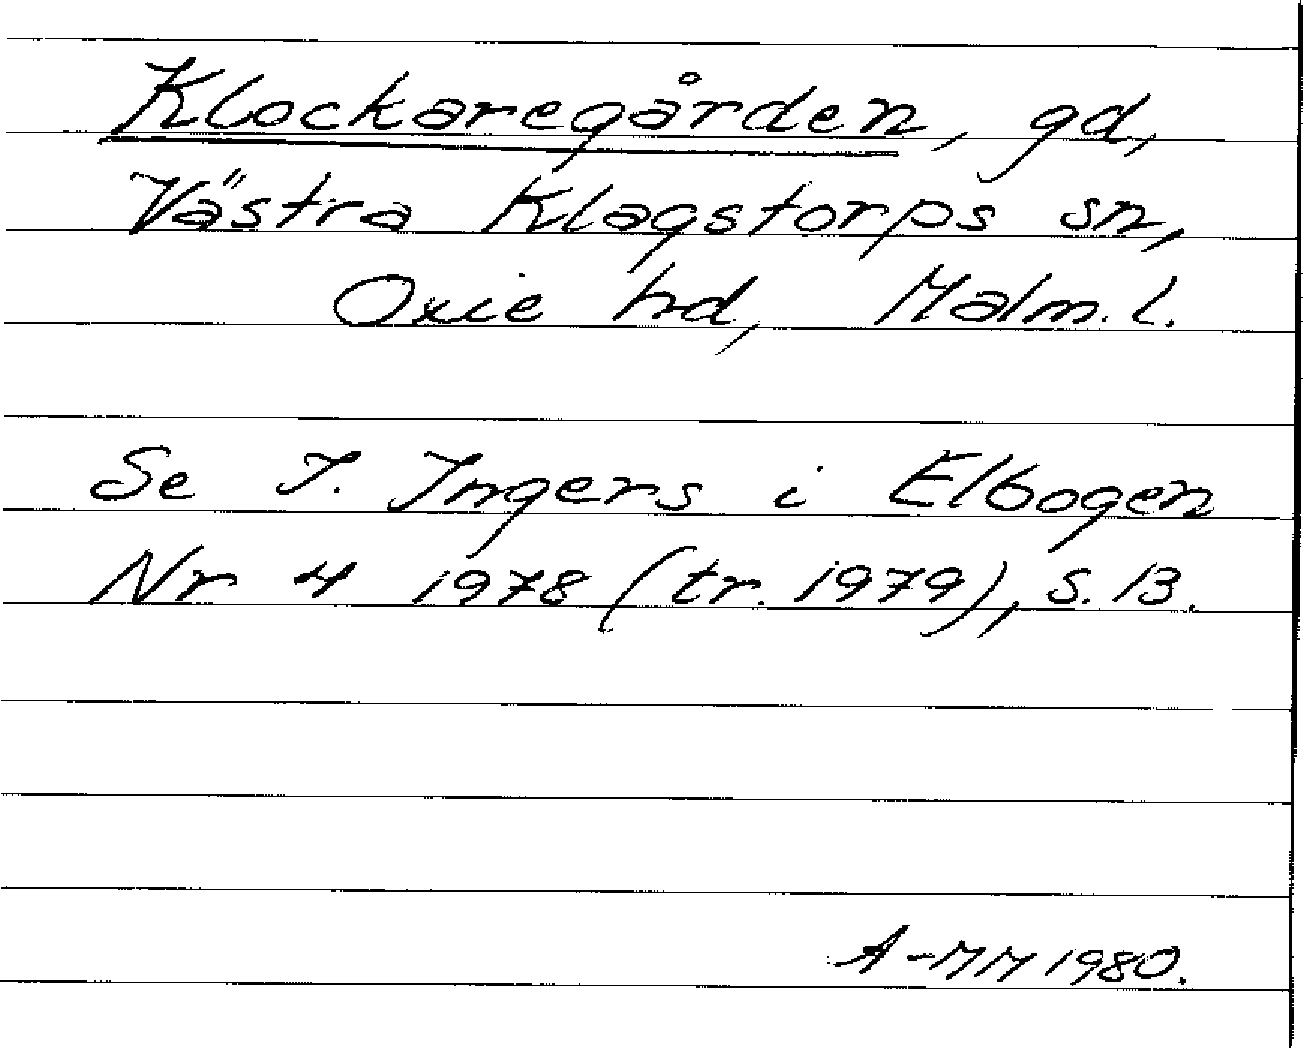 Klockaregården, gd,
Västra Klagstorps sn,
Oxie hd, Malm. l.
Se I. Ingers i Elbogen
Nr 4 1978 (tr. 1979), s. 13.
A-MM 1980.